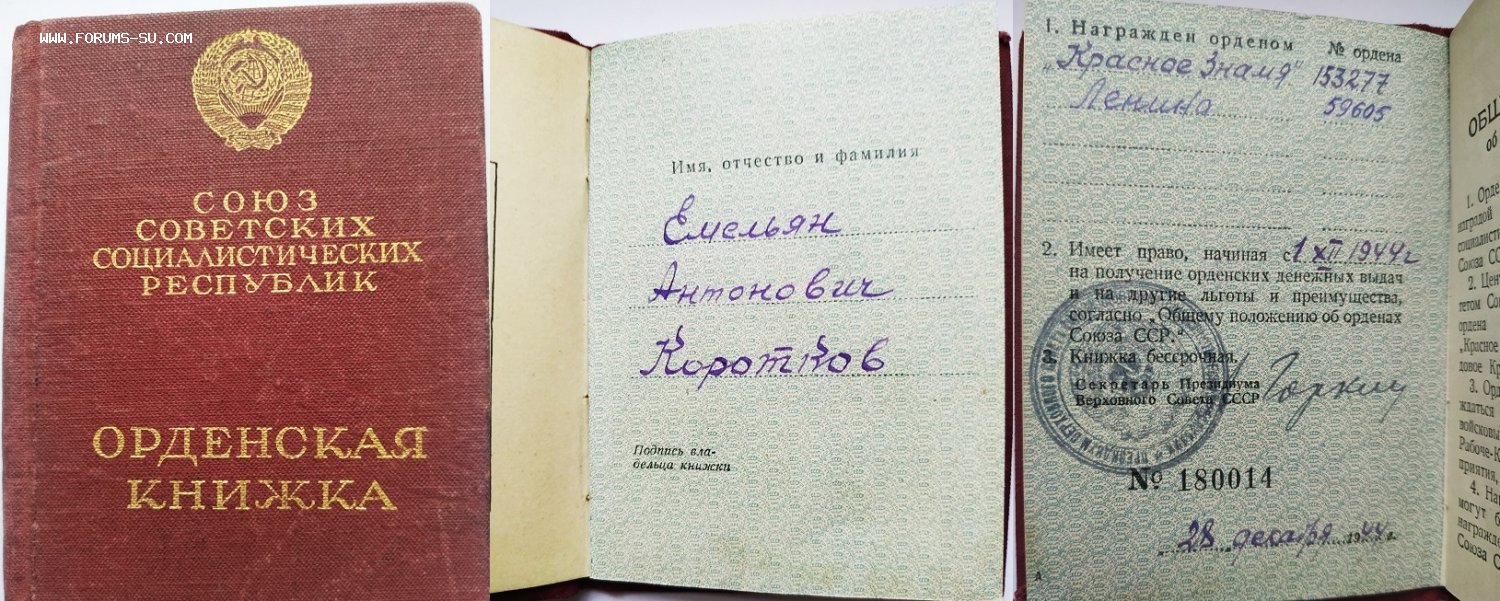 WWW.FORUMS-SU.COM
СОЮЗ
СОВЕТСКИХ
СОЦИАЛИСТИЧЕСКИХ
РЕСПУБЛИК
ОРДЕНСКАЯ
КНИЖКА
Имя, отчество и фамилия
Емельян
Антонович
Коротков
Подпись вла-
дельца книжки
1. Награжден орденом № ордена
„Красное Знамя" 153277
Ленина 59605
2. Имеет право, начиная с 1 XII 1944г
на получение орденских денежных выдач
и на другие льготы и преимущества,
согласно „Общему положению об орденах
Союза ССР."
3. Книжка бессрочная.
Секретарь Президиума
Верховного Совета СССР Горкин
№ 180014
28 декабря 1944 г.
А
ОБЩ
об
1. Орде
наградой
социалисти
Союза СС
2. Цен
тетом Со
ордена
„Красное
довое Кр
3. Орд
ждаться
войсковы
Рабоче-К
приятия,
4. На
могут б
награжде
Союза С